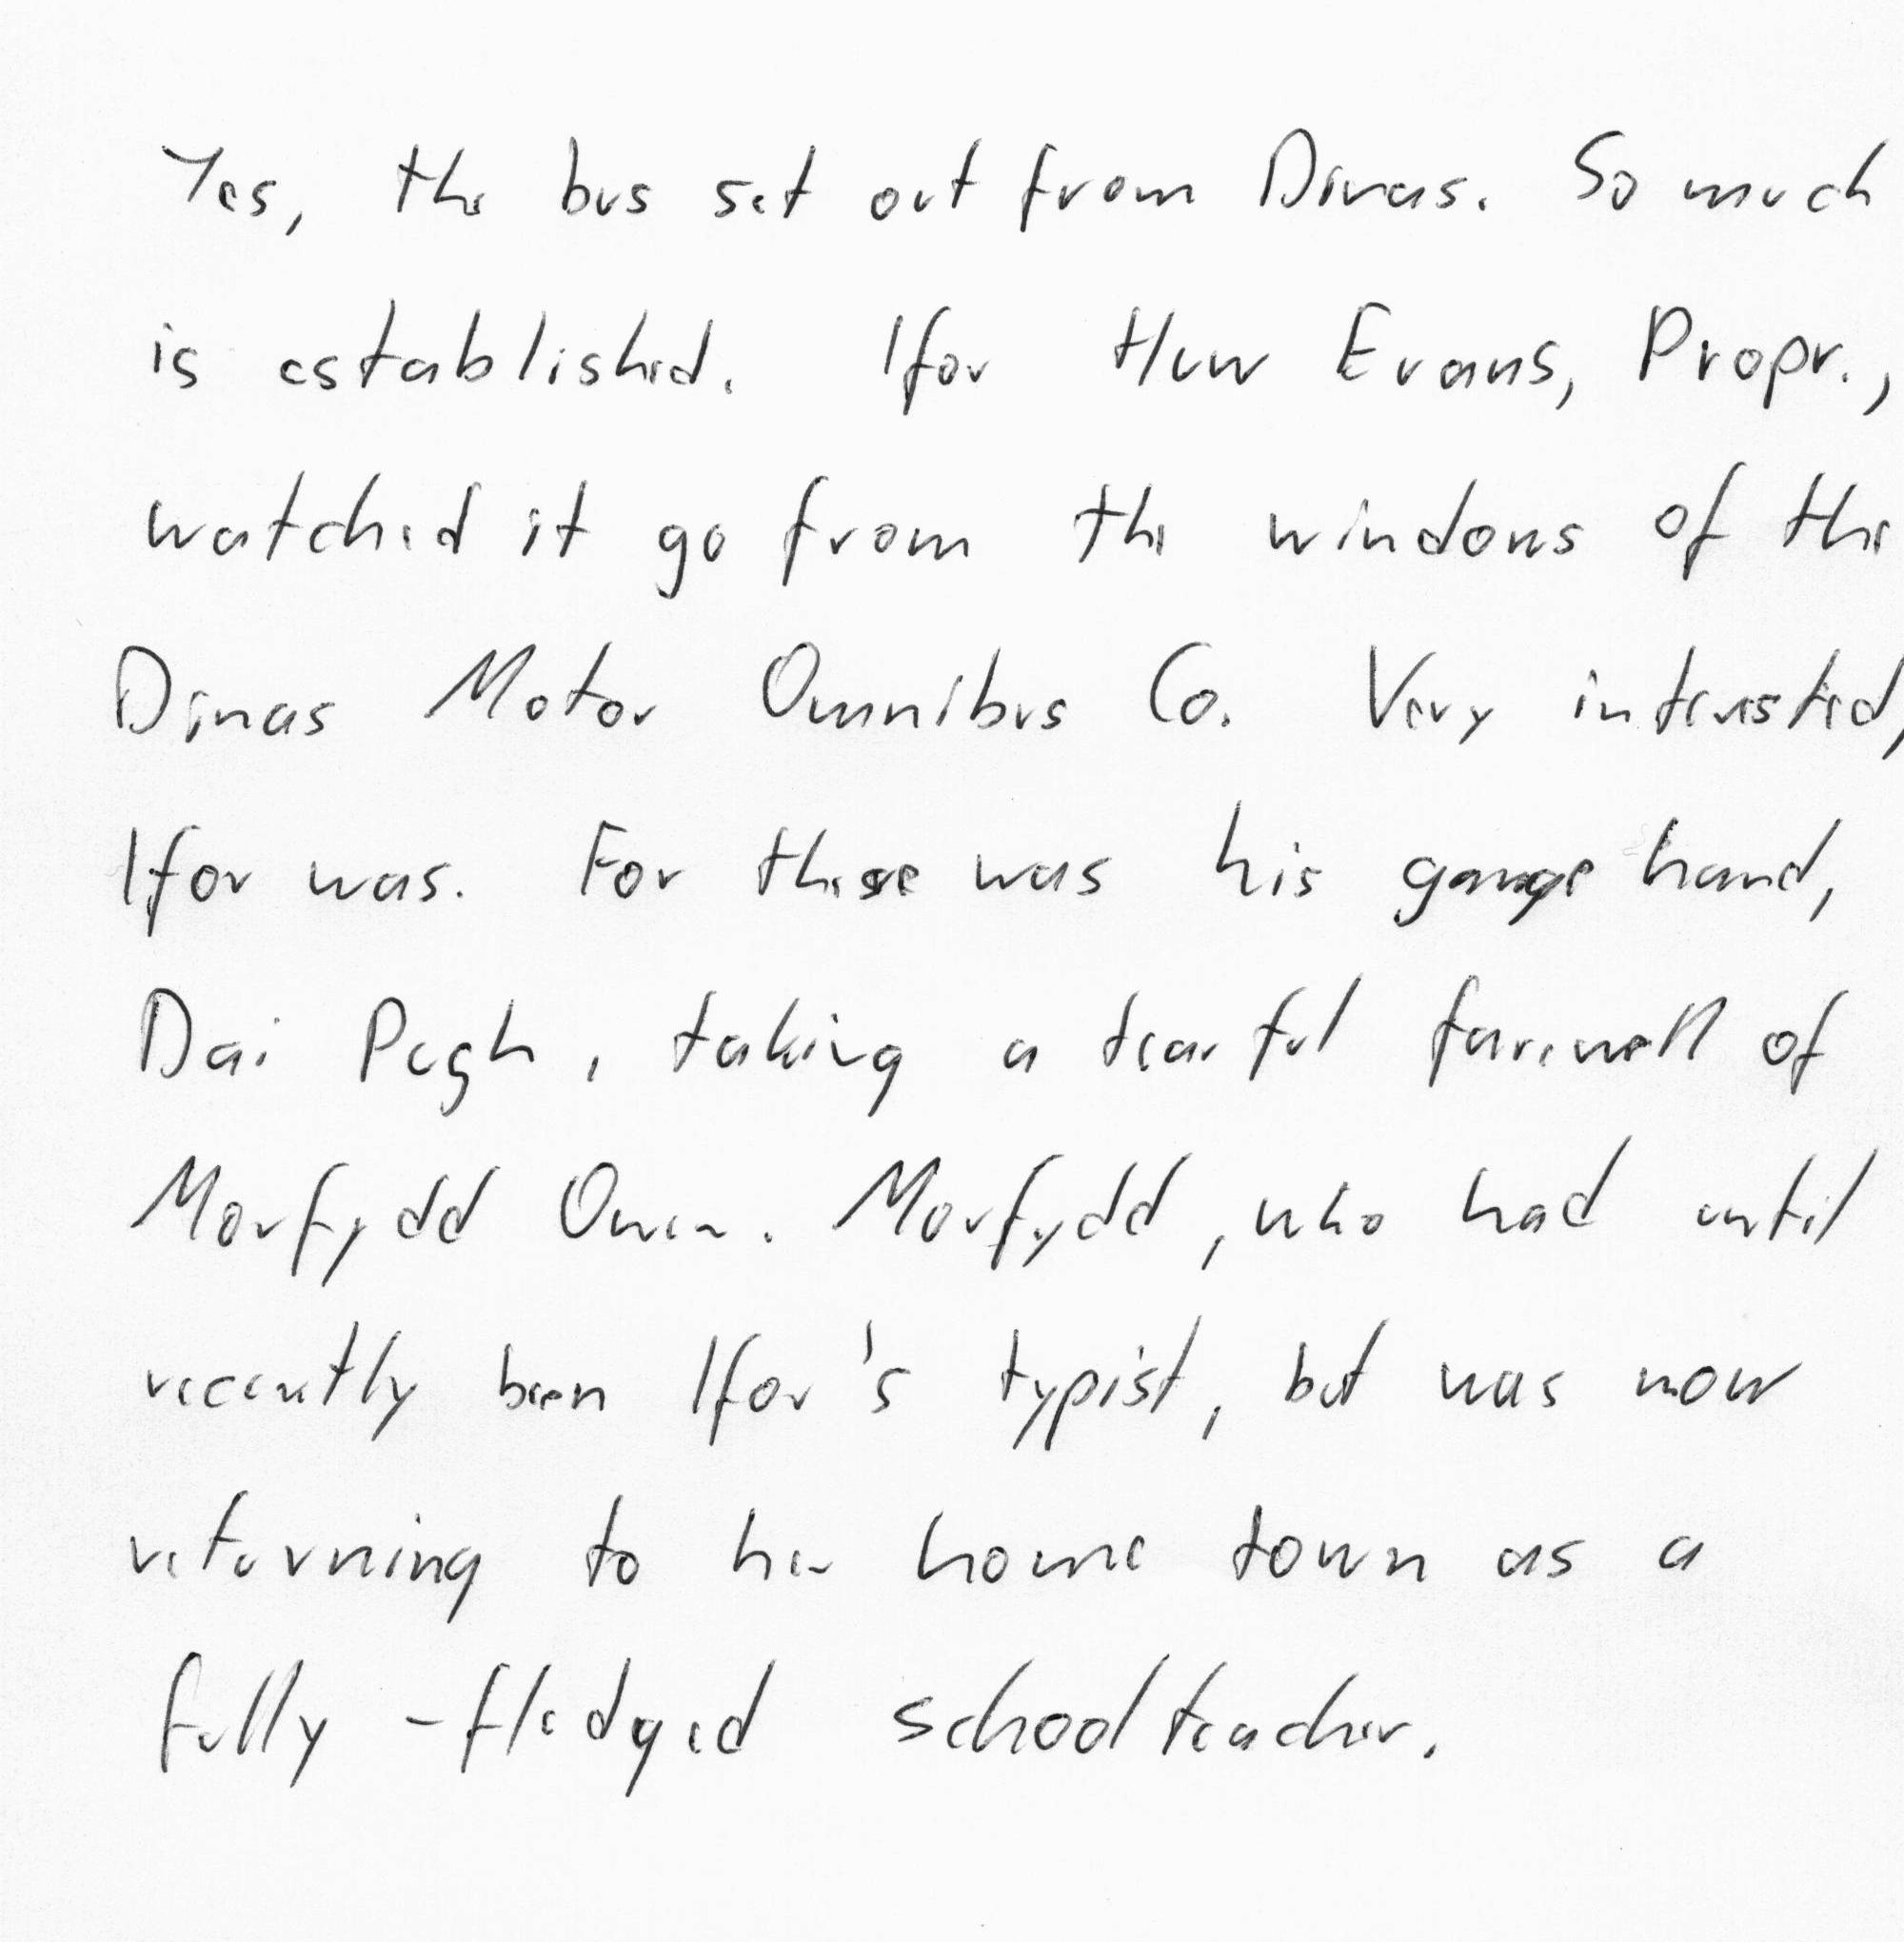 Yes, the bus set out from Dinas. So much
is established. Ifor Huw Evans, Propr.,
watched it go from the windows of the
Dinas Motor Omnibus Co. Very interested,
Ifor was. For there was his garage hand,
Dai Pugh, taking a tearful farewell of
Morfydd Owen. Morfydd, who had until
recently been Ifor's typist, but was now
returning to her home town as a
fully-fledged schoolteacher.